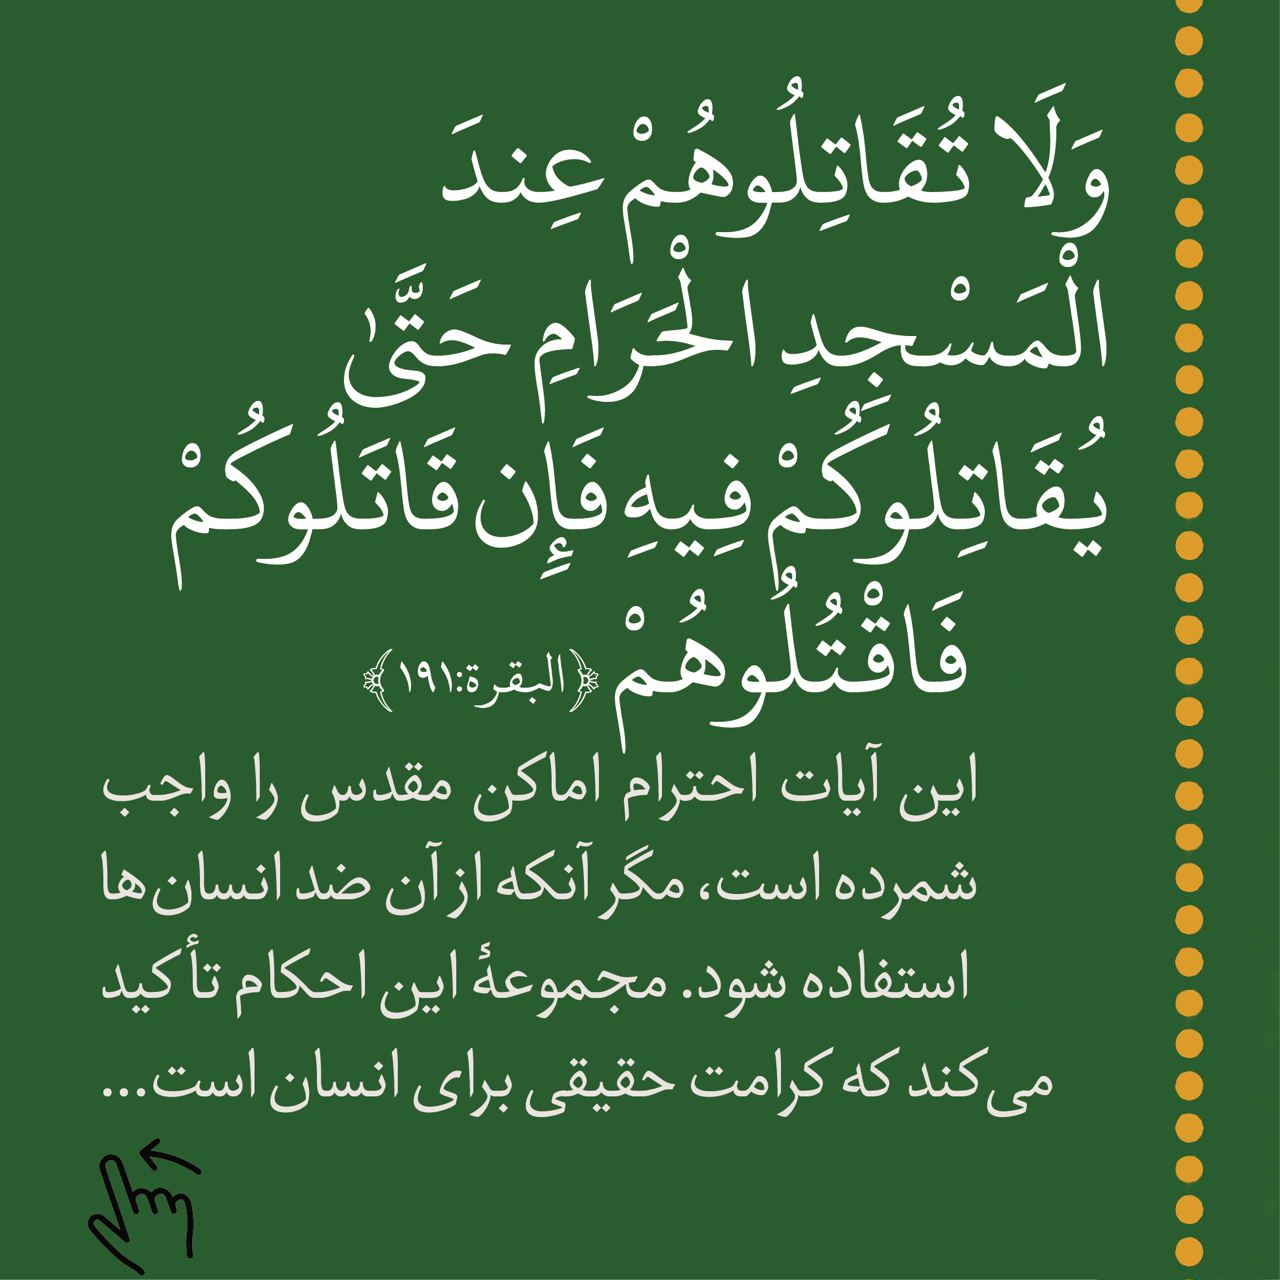 وَلَا تُقَاتِلُوهُمْ عِندَ
الْمَسْجِدِ الْحَرَامِ حَتَّىٰ
يُقَاتِلُوكُمْ فِيهِ فَإِن قَاتَلُوكُمْ
فَاقْتُلُوهُمْ ﴿البقرة:۱۹۱﴾
این آیات احترام اماکن مقدس را واجب
شمرده است، مگر آنکه از آن ضد انسان‌ها
استفاده شود. مجموعهٔ این احکام تأکید
می‌کند که کرامت حقیقی برای انسان است...